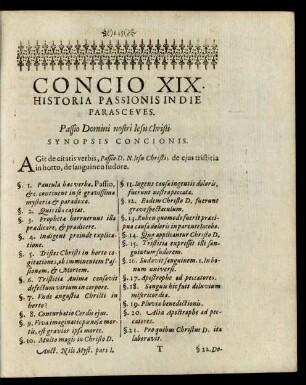 CONCIO XIX.
HISTORIA PASSIONIS IN DIE
PARASCEVES.
Passio Domini nostri Iesu Christi
SYNOPSIS CONCIONIS.
AGit de citatis verbis, Passio D. N. Iesu Christi: de ejus tristitia
in horto, de sanguineo sudore.
§. 1. Paucula hæc verba. Passio,
&c. continent in se gravissima
mysteria & paradoxa.
§. 2. Quis illa capiat.
§. 3. Prophetæ horruerunt illa
prædicere, & prædicere.
§. 4. Indigent proinde explica-
tione.
§. 5. Tristes Christi in horto co-
gitationes, ob imminentem Pas-
sionem, & Mortem.
§. 6. Tristitia Animæ causavit
defectum virium in corpore.
§. 7. Unde angustia Christi in
horto?
§. 8. Conturbatio Cordis ejus.
§. 9. Viva imaginatio pænæ a mor-
tis, est gravior ipsa morte.
§. 10. Multo magis in Christo D.
Anct. Nili Myst. pars I.
§ 11. Ingens census ingentis doloris,
fuerunt nostra peccata.
§. 12. Eadem Christo D, fuerunt
grave spectaculum.
§. 13. Ruben quomodo fuerit præci-
puus causa doloris in
§. 14. applicantur Christo D.
§. 15. Tristitia expressit illi san-
guineum sudorem.
§. 16. Iudæi vis sanguinem. 1. in bo-
num universi.
§. 17. Apostrophe ad peccatores.
§. 18. Sanguis hic fuit diluvium
misericordiæ.
§. 19. Pluvia benedictionis.
§. 20. Alia Apostrophe ad pec-
catores.
§. 21. Pro quibus Christus D. ita
laboravit.
T
§ 22. Do-